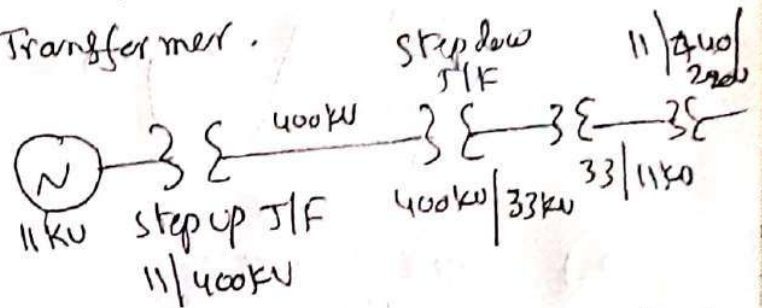 Transformer.
Step dow
T/F
11/440/
220v
400kV
N
11KV
Step up T/F
11/400KV
400kV/33kV
33/11kV